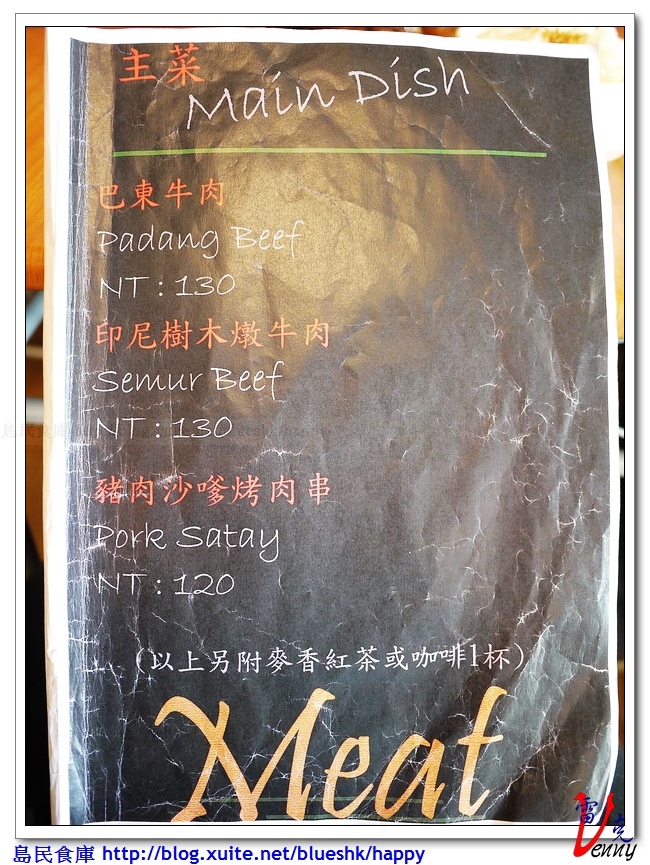 主菜
Main Dish
巴東牛肉
Padang Beef
NT : 130
印尼樹木燉牛肉
Semur Beef
NT : 130
豬肉沙嗲烤肉串
Pork Satay
NT : 120
(以上另附麥香紅茶或咖啡1杯)
Meat
雷克
Venny
島民食庫 http://blog.xuite.net/blueshk/happy